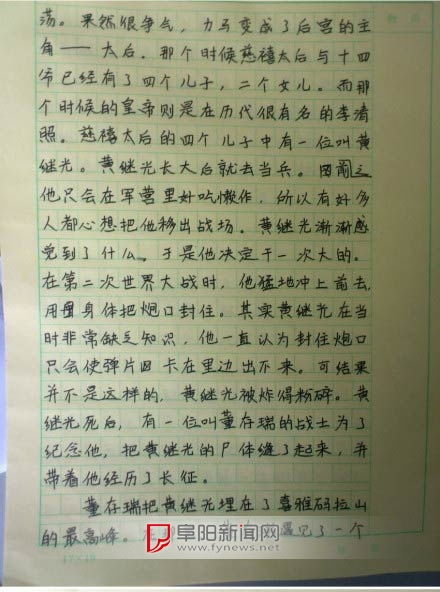 荡。果然很争气，力马变成了后宫的主
角——太后。那个时候慈禧太后与十四
爷已经有了四个儿子，二个女儿。而那
个时候的皇帝则是在历代很有名的李清
照。慈禧太后的四个儿子中有一位叫黄
继光。黄继光长大后就去当兵。因
他只会在军营里好吃懒作，所以有好多
人都心想把他移出战场。黄继光渐渐感
觉到了什么。于是他决定干一次大的。
在第二次世界大战时，他猛地冲上前去，
用身体把炮口封住。其实黄继光在当
时非常缺乏知识，他一直认为封住炮口
只会使弹片卡在里边出不来。可结果
并不是这样的，黄继光被炸得粉碎。黄
继光死后，有一位叫董存瑞的战士为了
纪念他，把黄继光的尸体缝了起来，并
带着他经历了长征。
董存瑞把黄继光埋在了喜雅码拉山
的最高峰。遇见了一个
阜阳新闻网
www.fynews.net